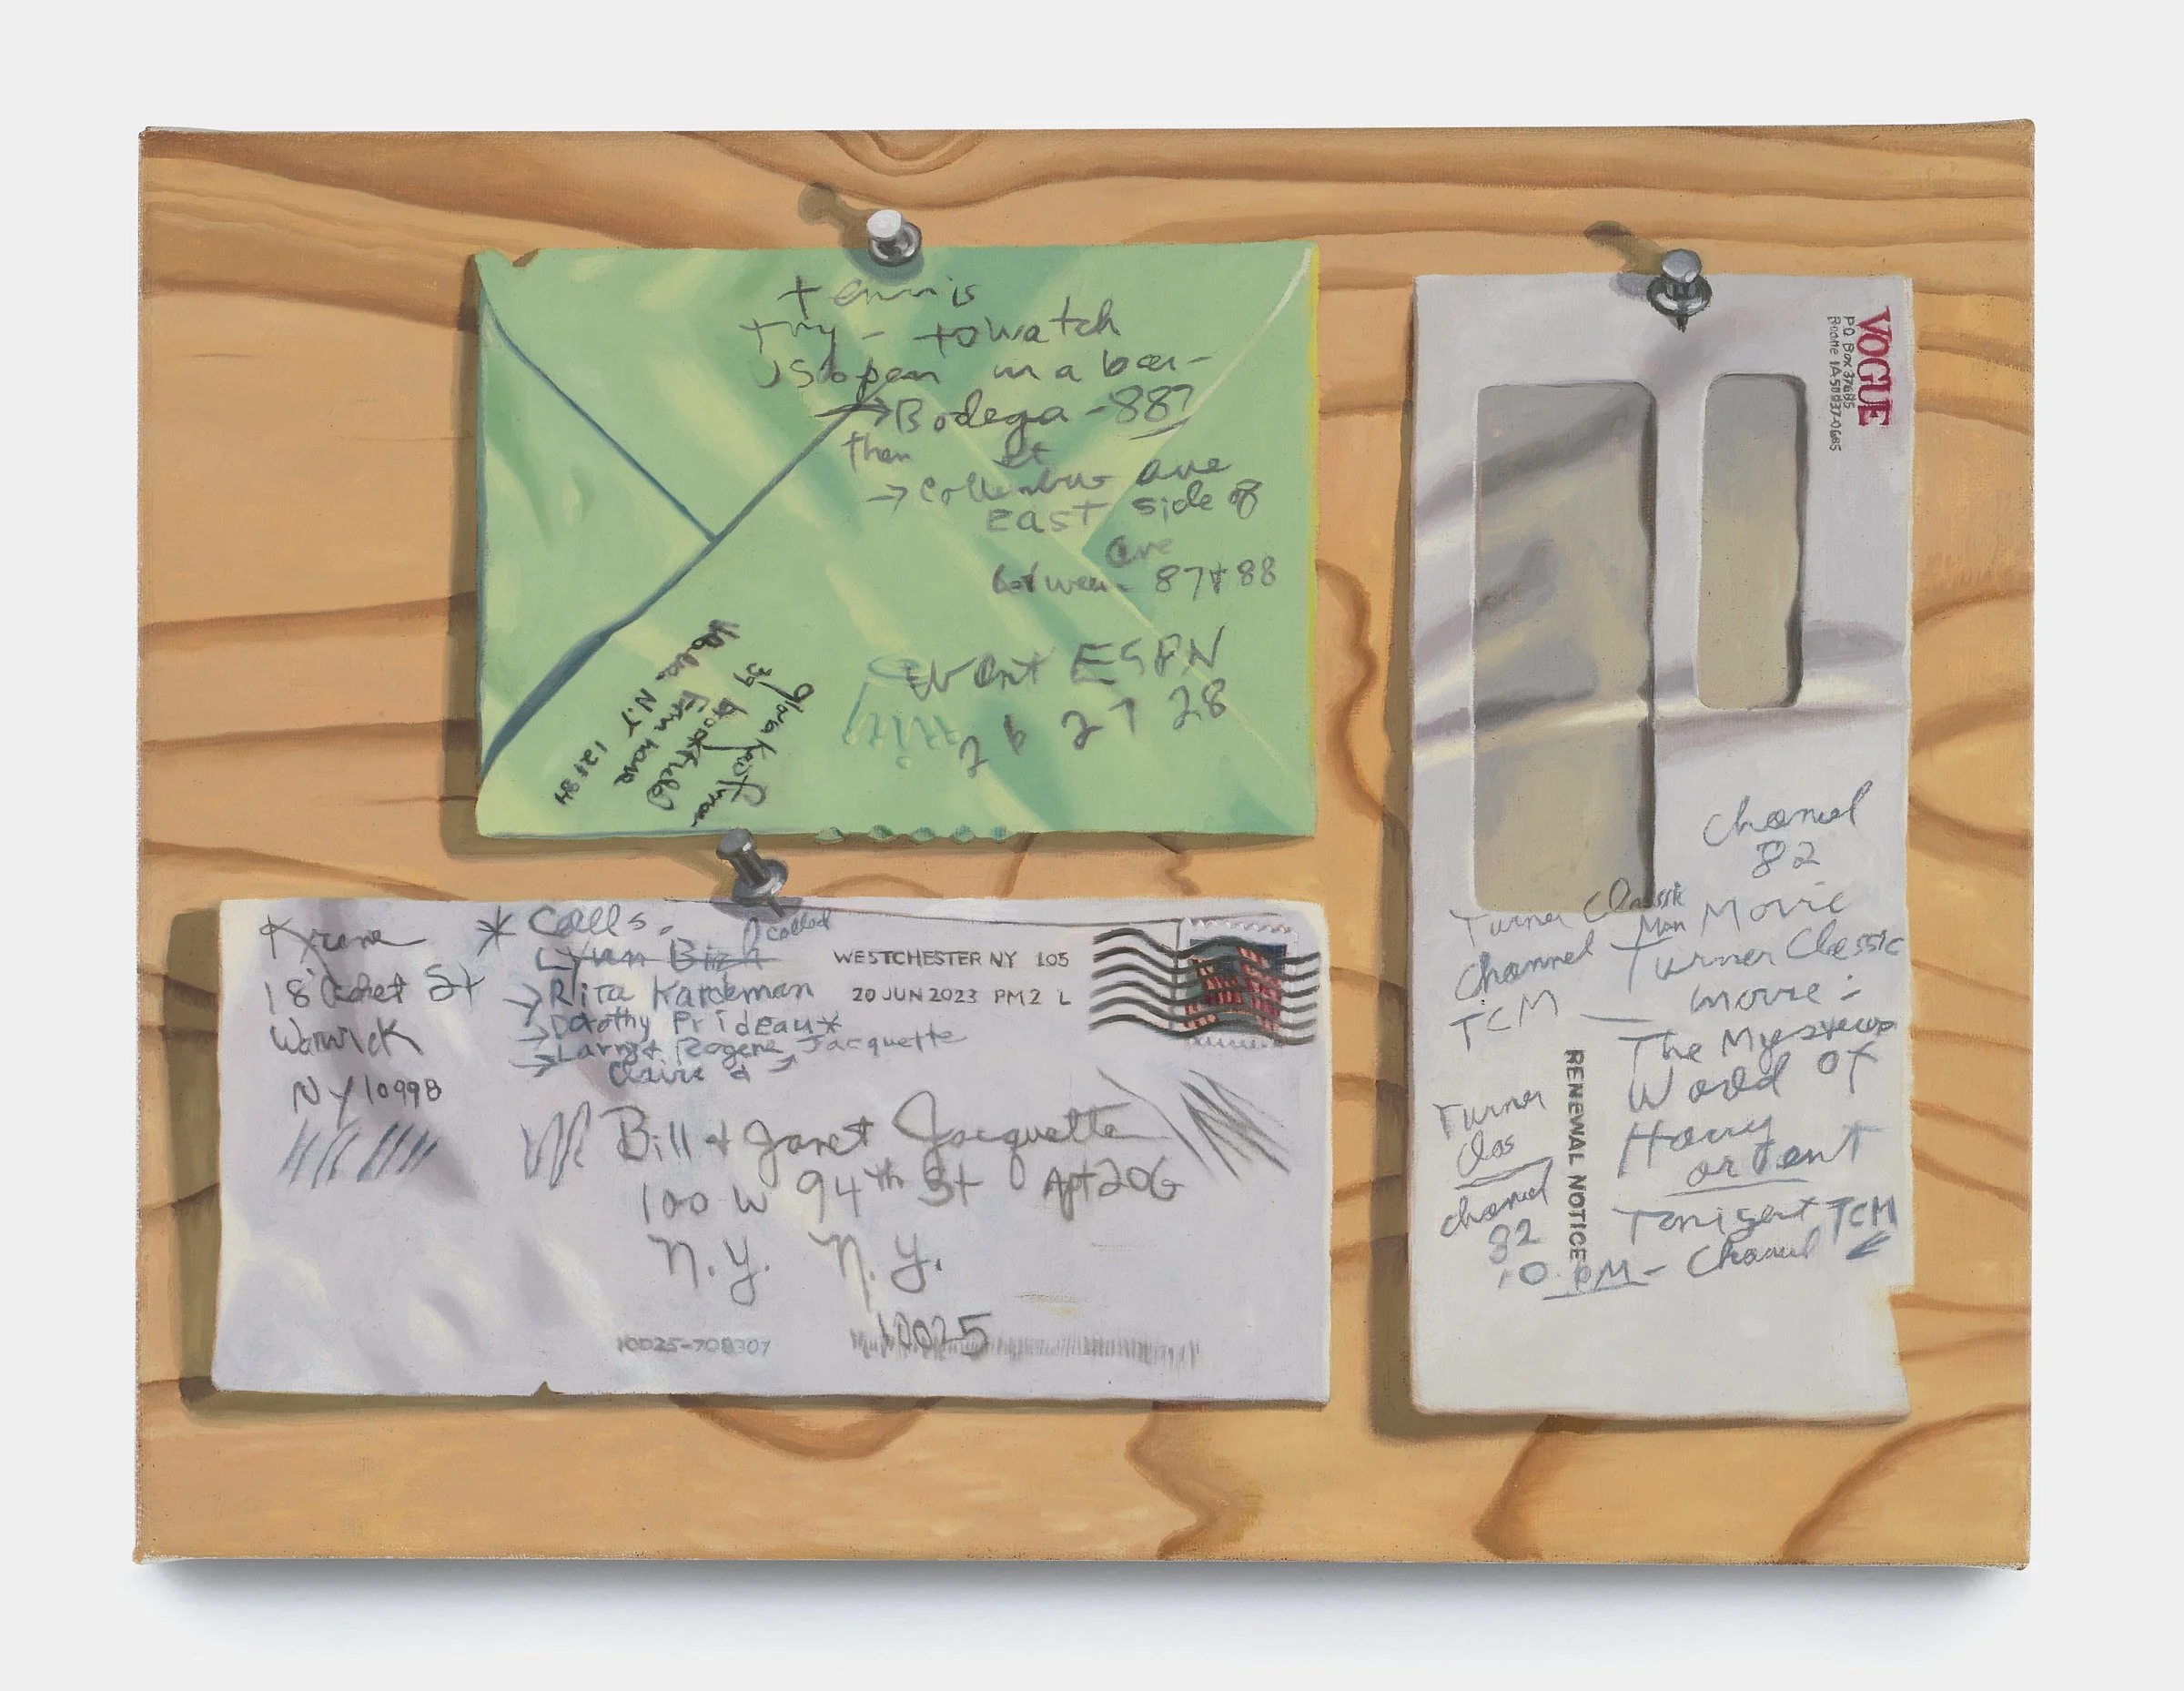 tennis
try - to watch
US open in a bar -
→ Bodega - 88?
then et
→ Columbus ave
EAST side of
ave
between 87 + 88
Want ESPN
26 27 28
39 Brookfield
Farm house
N.Y 12184
VOGUE
PO Box 37685
Boone IA 50037-0685
Chanel
82
Turner Classic
Movie
Channel
Turner Classic
movie :-
TCM —
The Mysteuos
World of
Harry
or gent
Turner
Clas
RENEWAL NOTICE
chanel
82
Tonigent TCM
10 PM - Chanul
Krane
18 St
Warwick
NY 10998
* Calls.
Lynn Bish called
→ Rita Kardeman
→ Dorothy Prideaux
→ Larry & Rogene Jacquette
Claire &
WESTCHESTER NY 105
20 JUN 2023 PM 2 L
Bill & Janet Jacquette
100 W 94th St Apt 20G
N.Y. N.Y.
10025
10025-708307